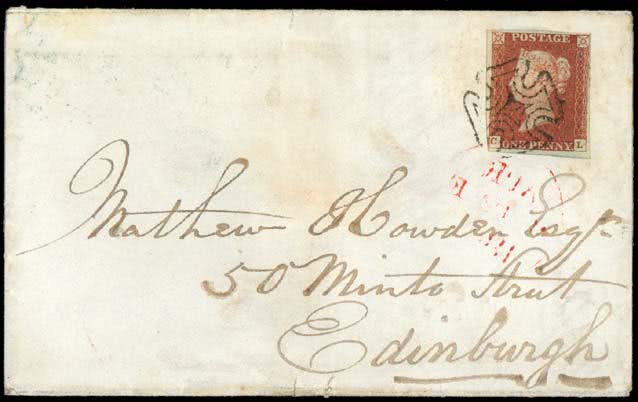 POSTAGE
C L
ONE PENNY
Mathew Howden Esqr
50 Minto Strut
Edinburgh